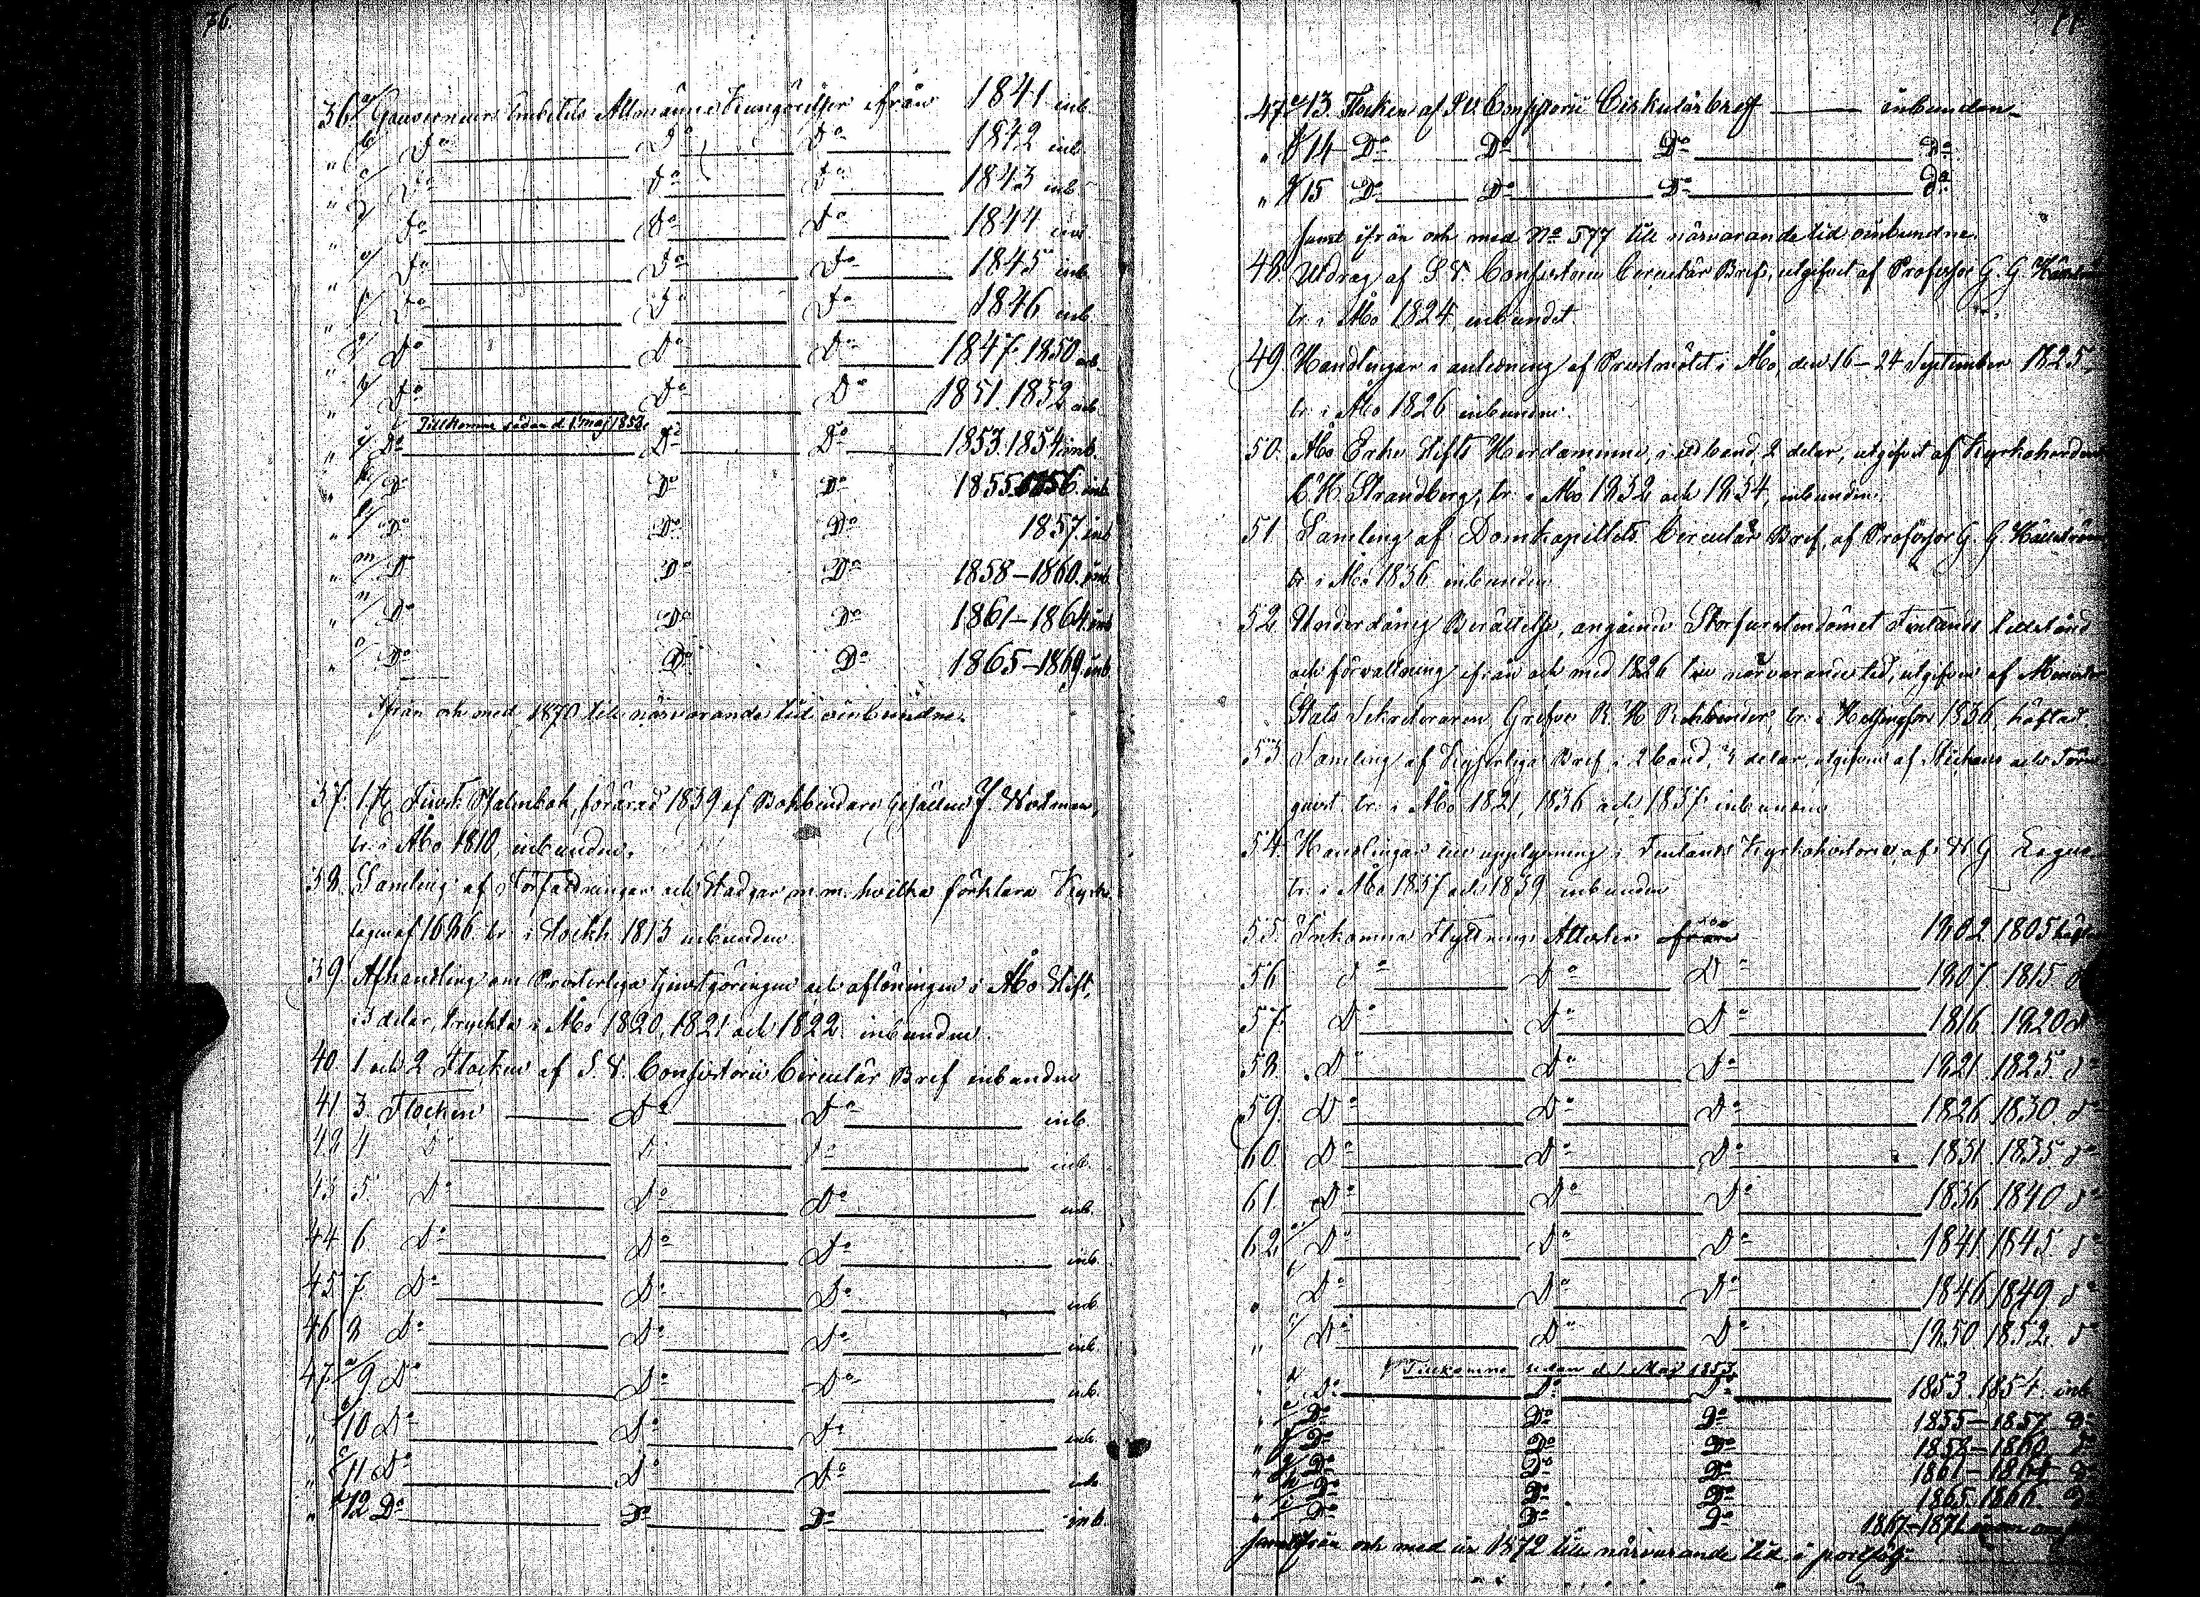 76.
36. a/ Gouverneurs Embetets Allmänna Kungörelser ifrån 1841 inb.
" b/ Do Do Do 1842 inb.
" c/ Do Do Do 1843 inb
" d/ Do Do Do 1844 inb
" e/ Do Do Do 1845 inb.
" f/ Do Do Do 1846 inb.
" g/ Do Do Do 1847. 1850 inb
" h/ Do Do Do 1851. 1852 inb
Tillkomne sedan d. 1 maj 1853.
" i/ Do Do Do 1853. 1854 inb.
" k/ Do Do Do 1855. 1856. inb
" l/ Do Do Do 1857. inb
" m/ Do Do Do 1858–1860. inb
" n/ Do Do Do 1861–1864 inb
" o/ Do Do Do 1865–1869 inb
Ifrån och med 1870 till närvarande tid oinbundne.
37. 1. st. Finsk Psalmbok, förärad 1839 af Bokbindare Gesällen J. Widman,
tr. i Åbo 1810, inbunden.
38. Samling af Förfaldningar och Stadgar m.m. hvilka förklara Kyrko-
lagen af 1686. tr. i Stockh. 1813 inbunden
39. Afhandling om Presterliga tjenstgöringen och aflöningen i Åbo Stift,
i 3 delar, tryckta i Åbo 1820, 1821 och 1822. inbundne.
40. 1 och 2 Flocken af S. V. Consistorii Circulär Bref inbundne
41 3. Flocken Do Do inb.
42 4 Do Do Do inb.
43 5. Do Do Do inb.
44 6 Do Do Do inb.
45 7 Do Do Do inb
46 8 Do Do Do inb.
47. a/ 9 Do Do Do inb.
" b/ 10 Do Do Do inb.
" c/ 11 Do Do Do inb
" d/ 12 Do Do Do inb.
77
47. e/ 13. Flocken af S. V. Consistorii Cirkulärbref inbunden
" f/ 14 Do Do Do Do
" g/ 15 Do Do Do do
samt ifrån och med No 577 till närvarande tid oinbundne.
48. Utdrag af S. V. Consistorii Circulär Bref, utgifvet af Professor G. G. Hällström
tr. i Åbo 1824, inbundet.
49 Handlingar i anledning af Prestmötet i Åbo, den 16–24 September 1825,
tr. i Åbo 1826 inbundne.
50. Åbo Erke Stifts Herdaminne, i ett band, 2 delar, utgifvet af Kyrkoherden
C. H. Strandberg, tr. i Åbo 1832 och 1834, inbunden.
51 Samling af Domkapitlets Circulär Bref, af Professor G. G. Hällström
tr. i Åbo 1836 inbunden
52 Underdånig Berättelse, angående Storfurstendömet Finlands tillstånd
och förvaltning ifrån och med 1826 till närvarande tid, utgifven af Minister
Stats Sekreteraren Grefve R. H. Rehbinder, tr. i Helsingfors 1836, häftad
53 Samling af Kejserliga Bref, i 2 band, 4 delar, utgifven af Avellan och Törn
quist tr. i Åbo 1821, 1836 och 1837. inbunden
54. Handlingar till upplysning i Finlands Kyrkohistoria, af W. G. Lagus
tr. i Åbo 1837 och 1839 inbunden
55. Inkomna Flyttnings Attester från 1802. 1805 häft
56 Do Do Do 1807. 1815 do
57. Do Do Do 1816. 1820 do
58. Do Do Do 1821. 1825. do
59. Do Do Do 1826. 1830. do
60. Do Do Do 1831. 1835. do
61. Do Do Do 1836. 1840 do
62. a/ Do Do Do 1841. 1845 do
" b/ Do Do Do 1846. 1849. do
" c/ Do Do Do 1850. 1852. do
Tillkomne sedan d. 1 Maj 1853.
" d/ Do Do Do 1853. 1854. inb
" e/ Do Do Do 1855–1857 Do
" f/ Do Do Do 1858–1860 do
" g/ Do Do Do 1861–1864 Do
" h/ Do Do Do 1865. 1866. Do
" i/ Do Do Do 1867–1871
samt ifrån och med år 1872 till närvarande tid i portfölj.